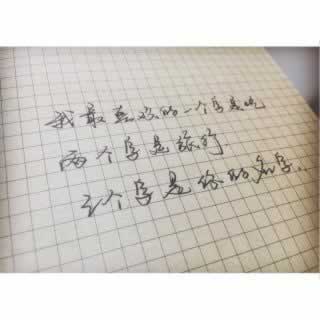 我最喜欢的一个字是吃
两个字是旅行
三个字是你的名字...